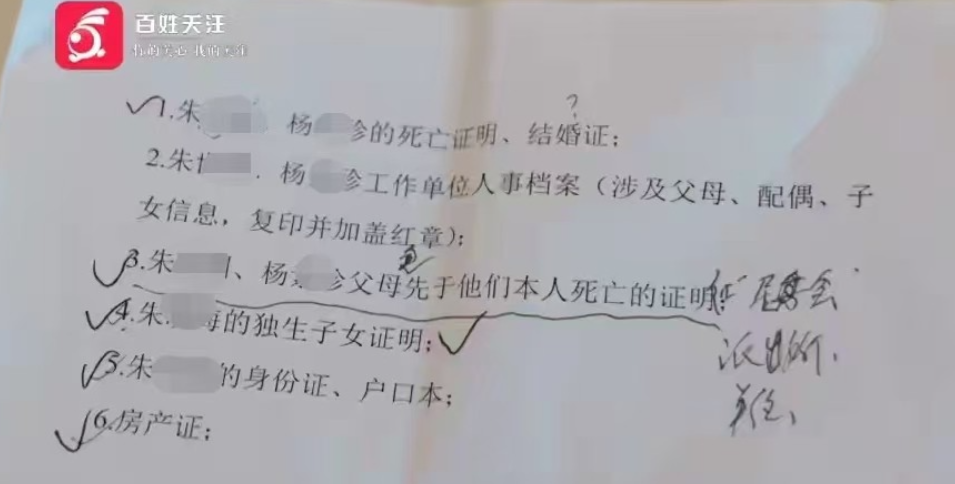 百姓关注
你的关心 我的关注
?
1.朱 杨 珍的死亡证明、结婚证;
2.朱 杨 珍工作单位人事档案(涉及父母、配偶、子
女信息,复印并加盖红章);
3.朱 、杨 珍父母先于他们本人死亡的证明; 居委会
派出所、
4.朱 海的独生子女证明;
单位、
5.朱 的身份证、户口本;
6.房产证;